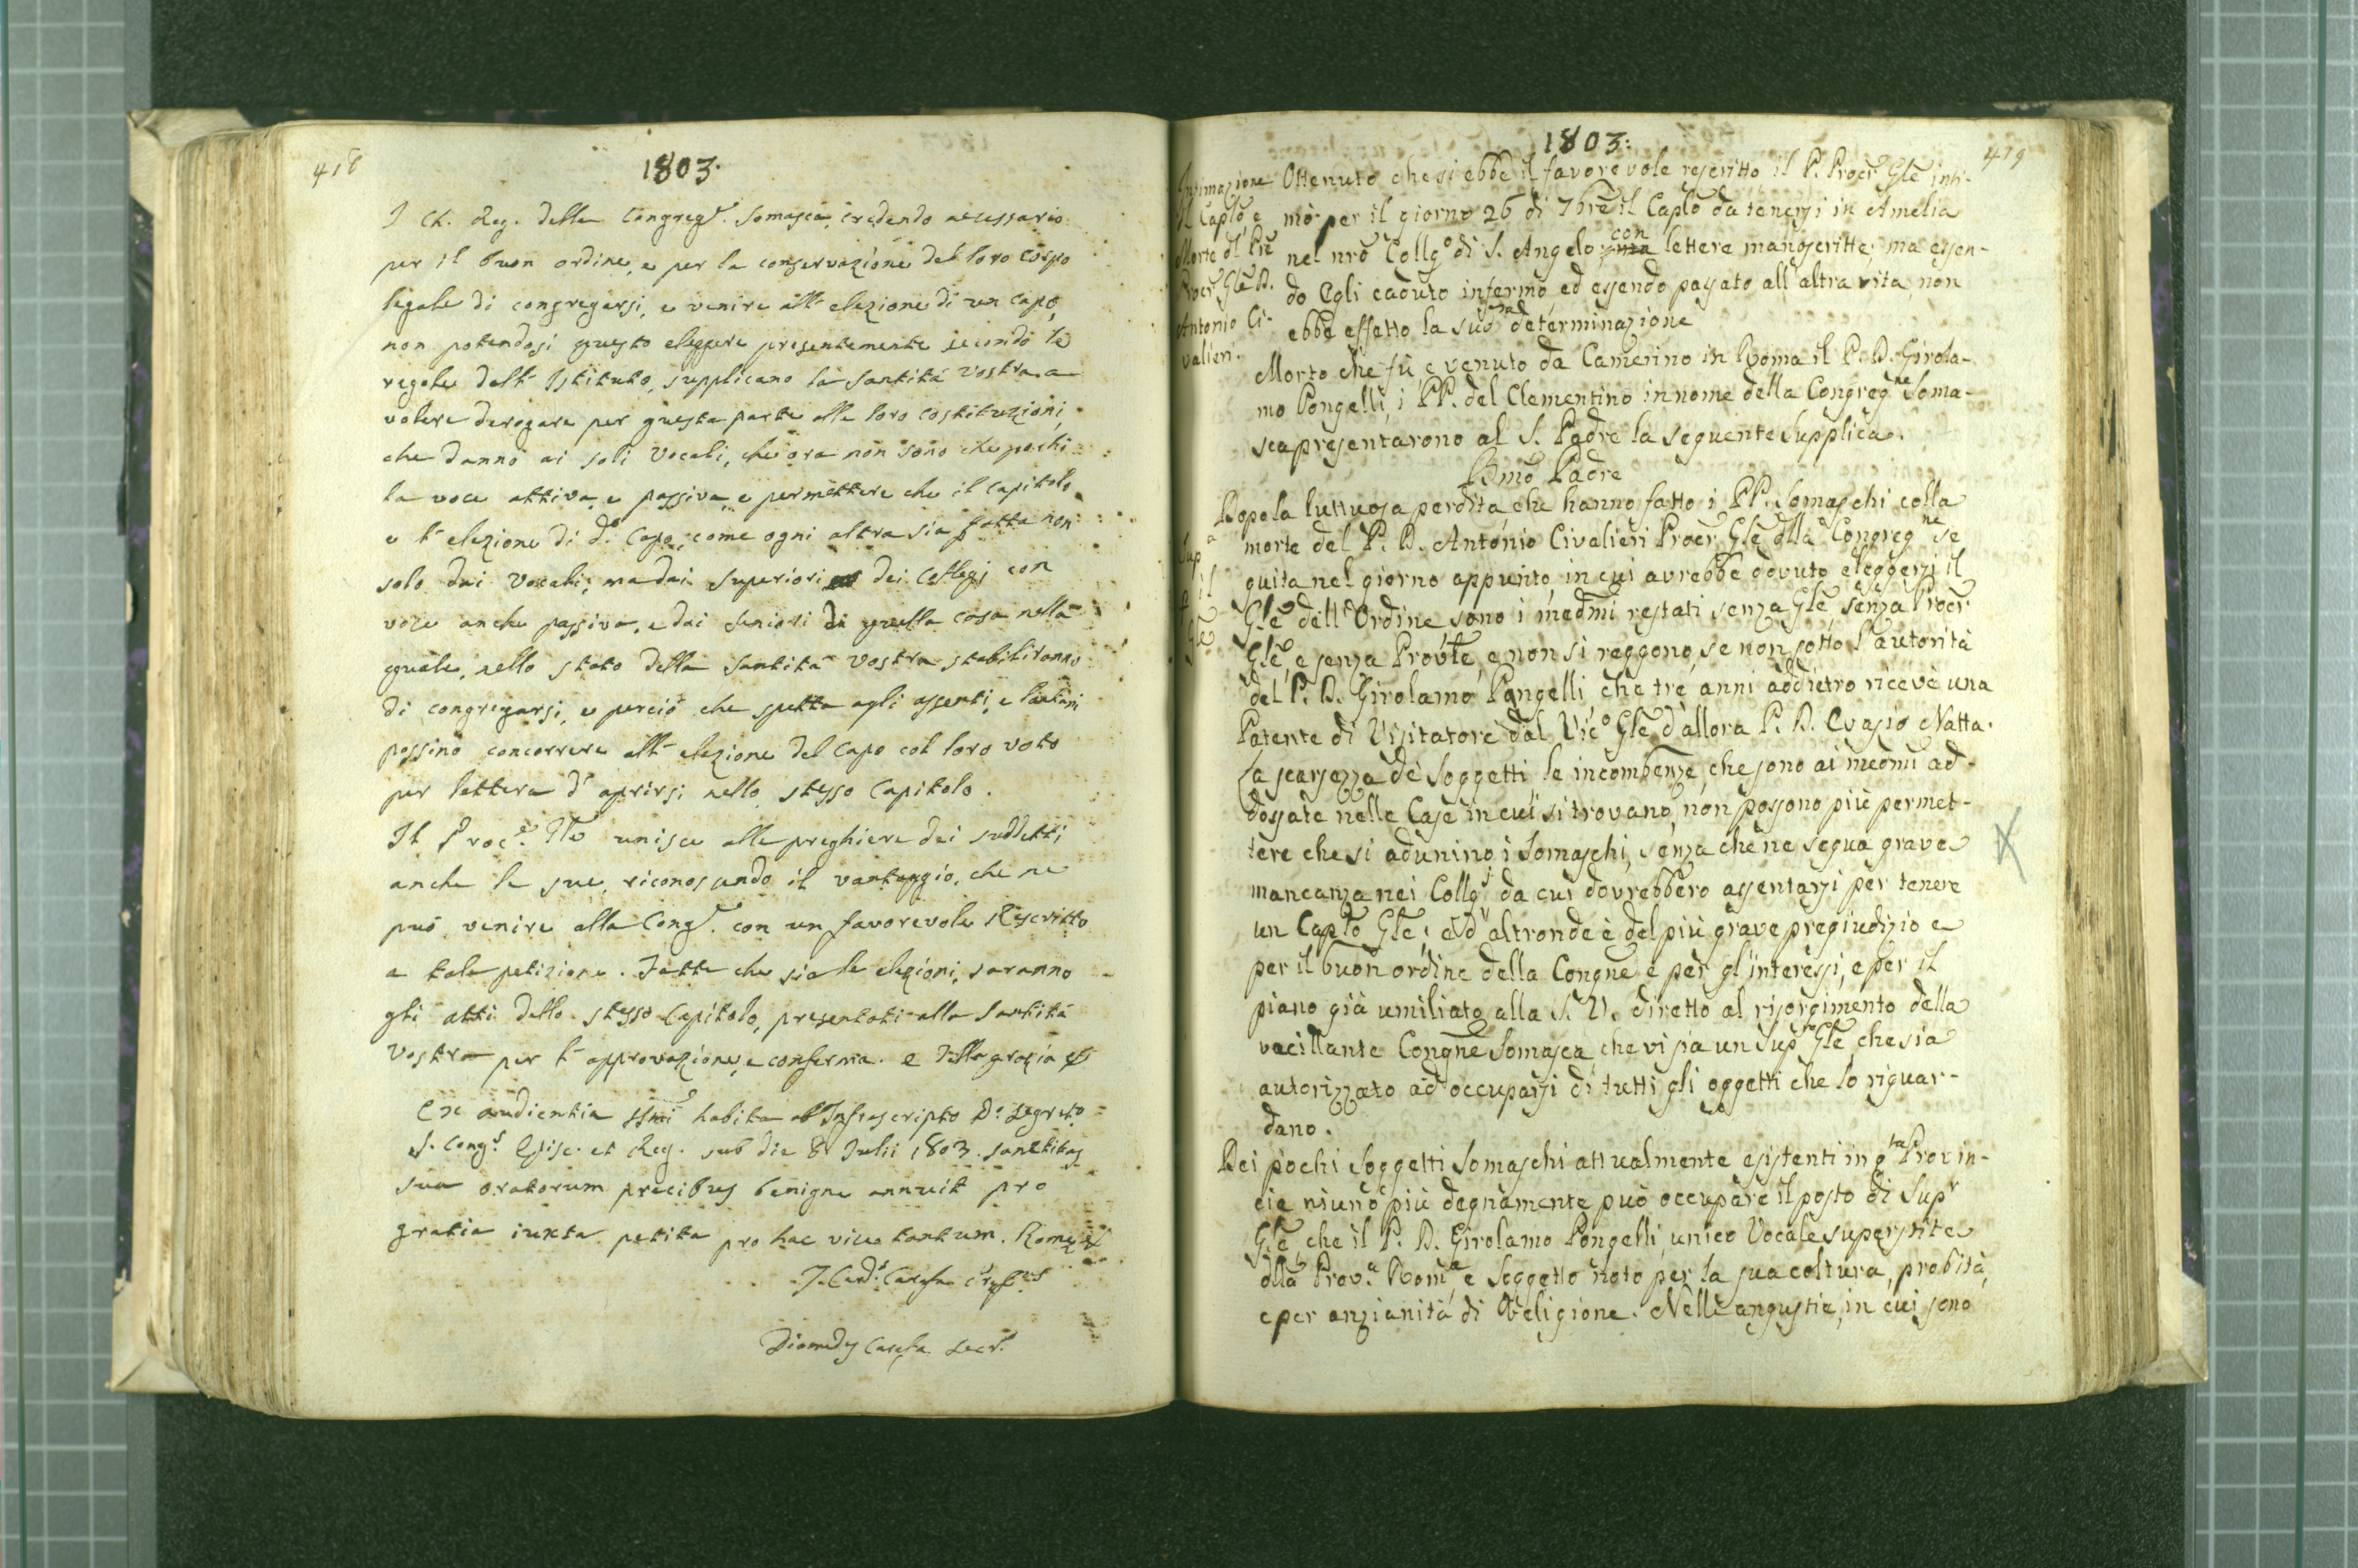 418
1803.
I Ch. Reg. della Congreg.e Somasca, credendo necessario
per il buon ordine, e per la conservazione del loro corpo
legale di congregarsi, e venire all' elezione di un capo,
non potendosi questo eleggere presentemente secondo le
regole dell' Istituto, supplicano la Santità Vostra a
volere derogare per questa parte alle loro costituzioni,
che danno ai soli Vocali, che ora non sono che pochi
la voce attiva, e passiva, e permettere che il capitolo,
e l' elezione di d.o Capo, come ogni altra sia fatta non
solo dai Vocali; ma dai Superiori dei Collegj con
voce anche passiva, e dai Seniori di quella casa nella
quale, nello stato della Santità Vostra stabiliranno
di congregarsi, e perciò che spetta agli assenti, e lontani
possino concorrere all' elezione del Capo col loro voto
per lettera d' aprirsi nello stesso Capitolo.
Il Proc.r Gle unisce alle preghiere dei suddetti,
anche le sue, riconoscendo il vantaggio, che ne
può venire alla Cong.e con un favorevole Rescritto
a tale petizione. Fatte che sia le elezioni, saranno
gli atti dello stesso Capitolo, presentati alla Santità
Vostra per l' approvazione, e conferma. e della grazia
Ex audientia SSmi habita ab Infrascripto D. Segret.o
S. Cong.s Episc. et Reg. sub die 8 Julii 1803. Sanctitas
sua oratorum precibus benigne annuit pro
gratia iuxta petita pro hac vice tantum. Romæ
J. Card.s Carafa Præf.us
Diomedes Carafa Secr.s
1803:
419
Intimazione
il Caplo, e
Morte dl Pre
Procr Gle D.
Antonio Ci-
valieri.
Ottenuto che si ebbe il favorevole rescritto il P. Procr Gle inti-
mò per il giorno 26 di 7bre il Caplo da tenersi in Amelia
nel nro Collg.o di S. Angelo, con lettere manoscritte; ma essen-
do Egli caduto infermo ed essendo passato all' altra vita, non
ebbe effetto la sua determinazione
Morto che fù, e venuto da Camerino in Roma il P. D. Girola-
mo Pongelli, i PP. del Clementino in nome della Congreg.ne Soma-
sca presentarono al S. Padre la seguente Supplica.
Bmo Padre
Sup.a
p il
Gle
Dopo la luttuosa perdita che hanno fatto i PP. Somaschi colla
morte del P. D. Antonio Civalieri Procr Gle dlla Congreg.ne se
guita nel giorno appunto, in cui avrebbe dovuto eleggersi il
Gle dell' Ordine sono i medmi restati senza Gle, senza Procr
Gle, e senza Provle, e non si reggono, se non sotto l' autorità
del P. D. Girolamo Pongelli, che tre anni addietro ricevè una
Patente di Visitatore dal Vic.o Gle d' allora P. D. Evasio Natta.
La scarsezza de' Soggetti le incombenze, che sono ai medmi ad-
dossate nelle Case in cui si trovano, non possono più permet-
tere che si adunino i Somaschi, senza che ne segua grave
mancanza nei Collg.j da cui dovrebbero assentarsi per tenere
un Caplo Gle; ed altronde è del più grave pregiudizio e
per il buon ordine della Congne e per gl' interessi, e per il
piano già umiliato alla S. V. diretto al risorgimento della
vacillante Congne Somasca che vi sia un Sup.re Gle, che sia
autorizzato ad occuparsi di tutti gli oggetti che lo riguar-
dano.
Dei pochi Soggetti Somaschi attualmente esistenti in q.ta Provin-
cia niuno più degnamente può occupare il posto di Sup.r
Gle, che il P. D. Girolamo Pongelli, unico Vocale superstite
dlla Prov.a Rom.a e Soggetto noto per la sua coltura, probità,
e per anzianità di Religione. Nelle angustie, in cui sono